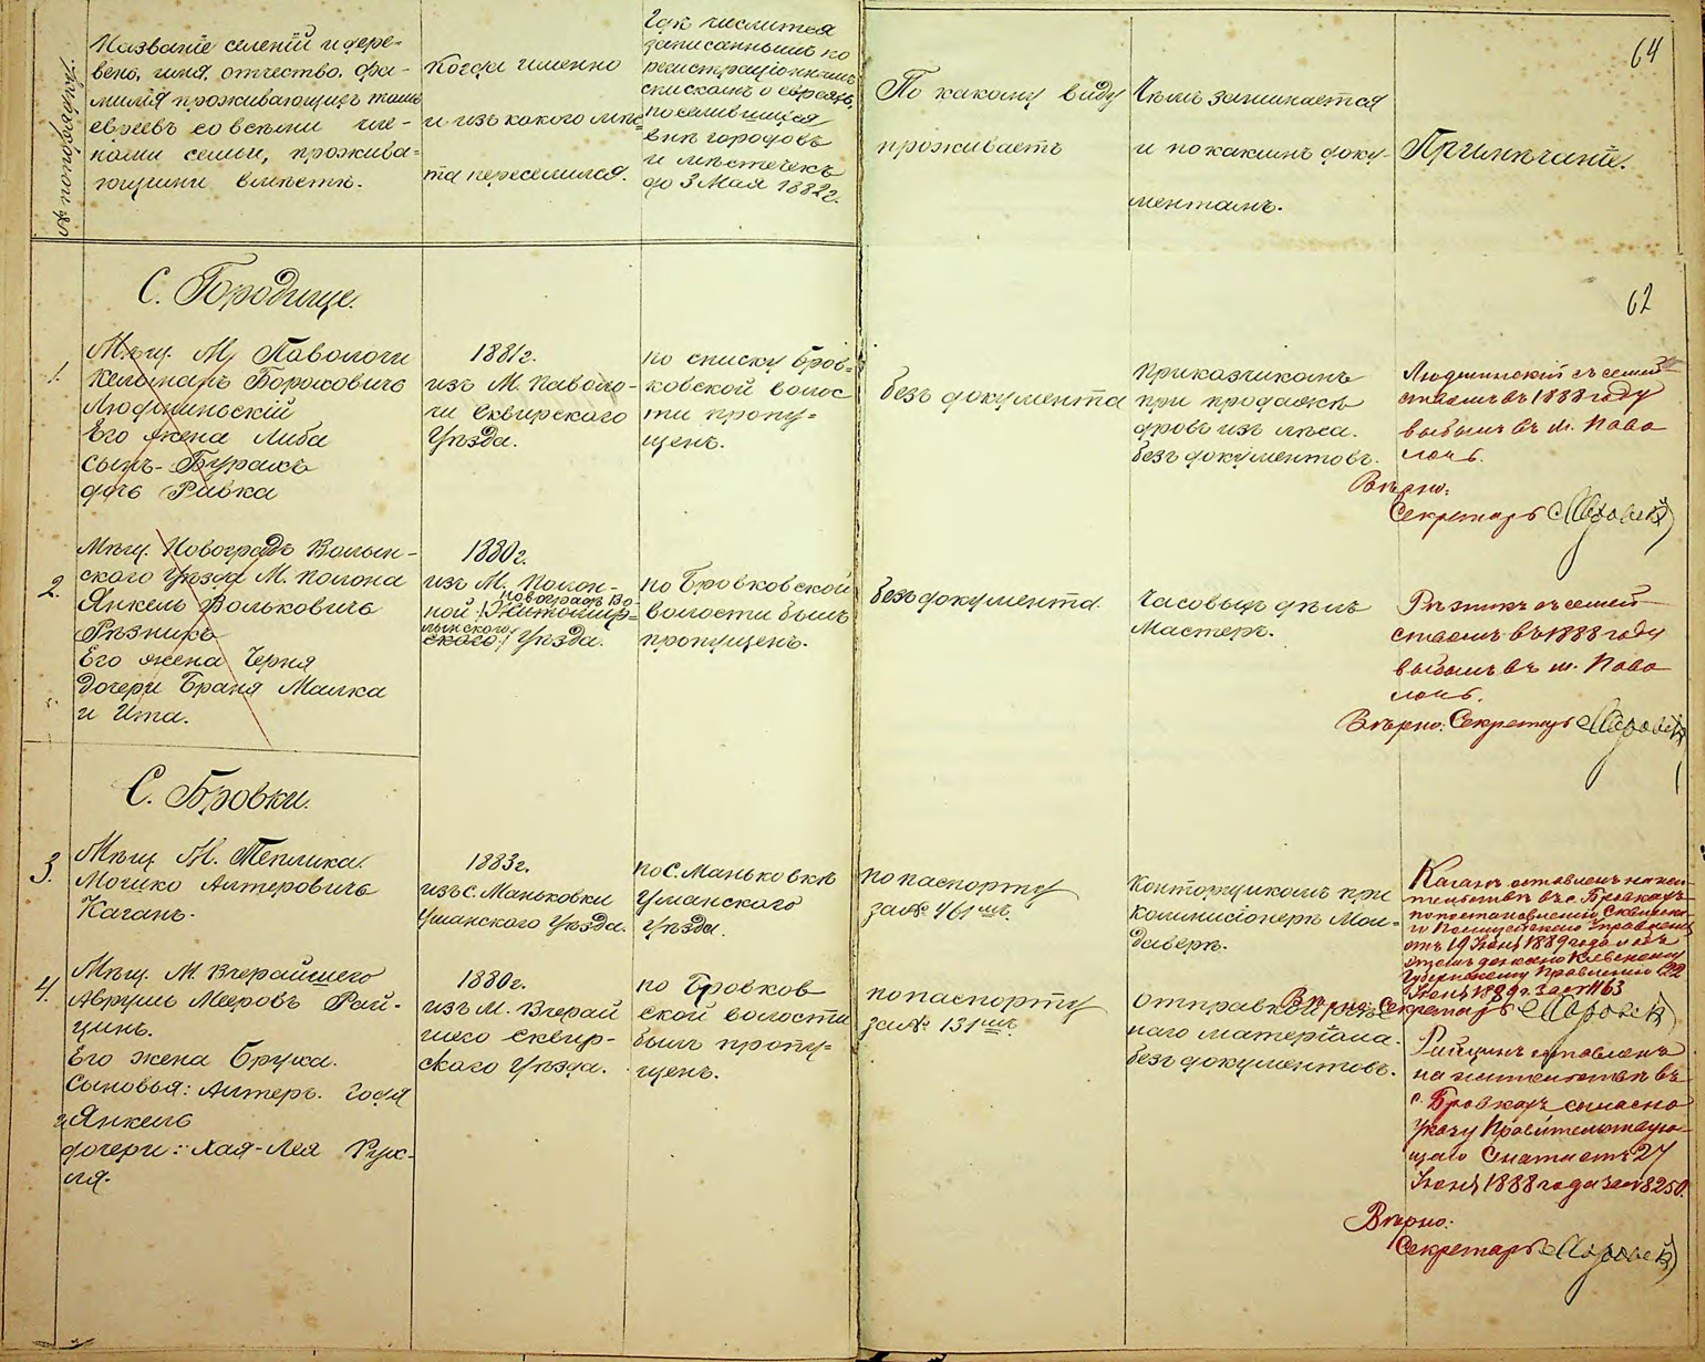 № по порядку.
Названіе селеній и дере-
вень, имя, отчество, фа-
милія проживающихъ тамъ
евреевъ со всѣми чле-
нами семьи, прожива-
ющими вмѣстѣ.
Когда именно
и изъ какого мѣс-
та переселился.
Гдѣ числится
записаннымъ по
регистраціоннымъ
спискамъ о евреяхъ,
поселившихся
внѣ городовъ
и мѣстечекъ
до 3 Мая 1882 г.
По какому виду
проживаетъ
Чѣмъ занимается
и по какимъ доку-
ментамъ.
Примѣчаніе.
64
62
С. Городище.
1.
Мѣщ. М. Паволочи
Кельманъ Бороховичъ
Людминьскій
Его жена Либа
сынъ-Бурахъ
дочь Ривка
1881 г.
изъ М. Паволо-
чи Сквирскаго
Уѣзда.
по списку Бров-
ковской волос
ти пропу-
щенъ.
безъ документа
Приказчикомъ
при продажѣ
дровъ изъ лѣса.
безъ документовъ.
Людминскій съ семей
ствомъ въ 1888 году
выбылъ въ м. Паво
лочь.
Вѣрно:
Секретарь
2.
Мѣщ. Новоградъ Волын-
скаго Уѣзда М. Полона
Янкель Вольковичъ
Рѣзникъ
Его жена Черня
Дочери Браня Малка
и Ита.
1880 г.
изъ М. Полон-
Новоградъ Во-
ной /Житомир-
лынскаго
скаго/ Уѣзда.
по Бровковской
волости былъ
пропущенъ.
безъ документа.
Часовыхъ дѣлъ
Мастеръ.
Рѣзникъ съ семей
ствомъ въ 1888 году
выбылъ въ м. Паво
лочь.
Вѣрно: Секретарь
С. Бровки.
3.
Мѣщ. М. Теплика.
Мошко Алтеровичъ
Каганъ.
1883 г.
изъ с. Маньковки
Уманскаго Уѣзда.
по С. Маньковкѣ
Уманскаго
Уѣзда.
по паспорту
за № 461 мъ.
Конторщикомъ при
коммисіонерѣ Мои-
даверѣ.
Каганъ оставленъ на жи-
тельствѣ въ с. Бровкахъ
по постановленію Сквирска-
го Полицейскаго Управленія
отъ 19 Іюня 1889 года о чемъ
донесено Кіевскому
Губернскому Правленію 22
Іюня 1889 г. за № 1163
Вѣрно: Секретарь
4.
Мѣщ. М. Вчерайшего
Аврумъ Мееровъ Рай-
цинъ.
Его жена Брука.
Сыновья: Алтеръ. Годя
и Янкель
дочери: Хая-Лея Рух-
ля.
1880 г.
изъ М. Вчерай
шего Сквир-
скаго Уѣзда.
по Бровков
ской волости
былъ пропу-
щенъ.
по паспорту
за № 131 мъ.
отправкой
наго матеріала.
безъ документовъ.
Райцинъ оставленъ
на жительствѣ въ
с. Бровкахъ согласно
указу Правительствую-
щаго Сената отъ 27
Іюня 1888 года за № 8250.
Вѣрно:
Секретарь